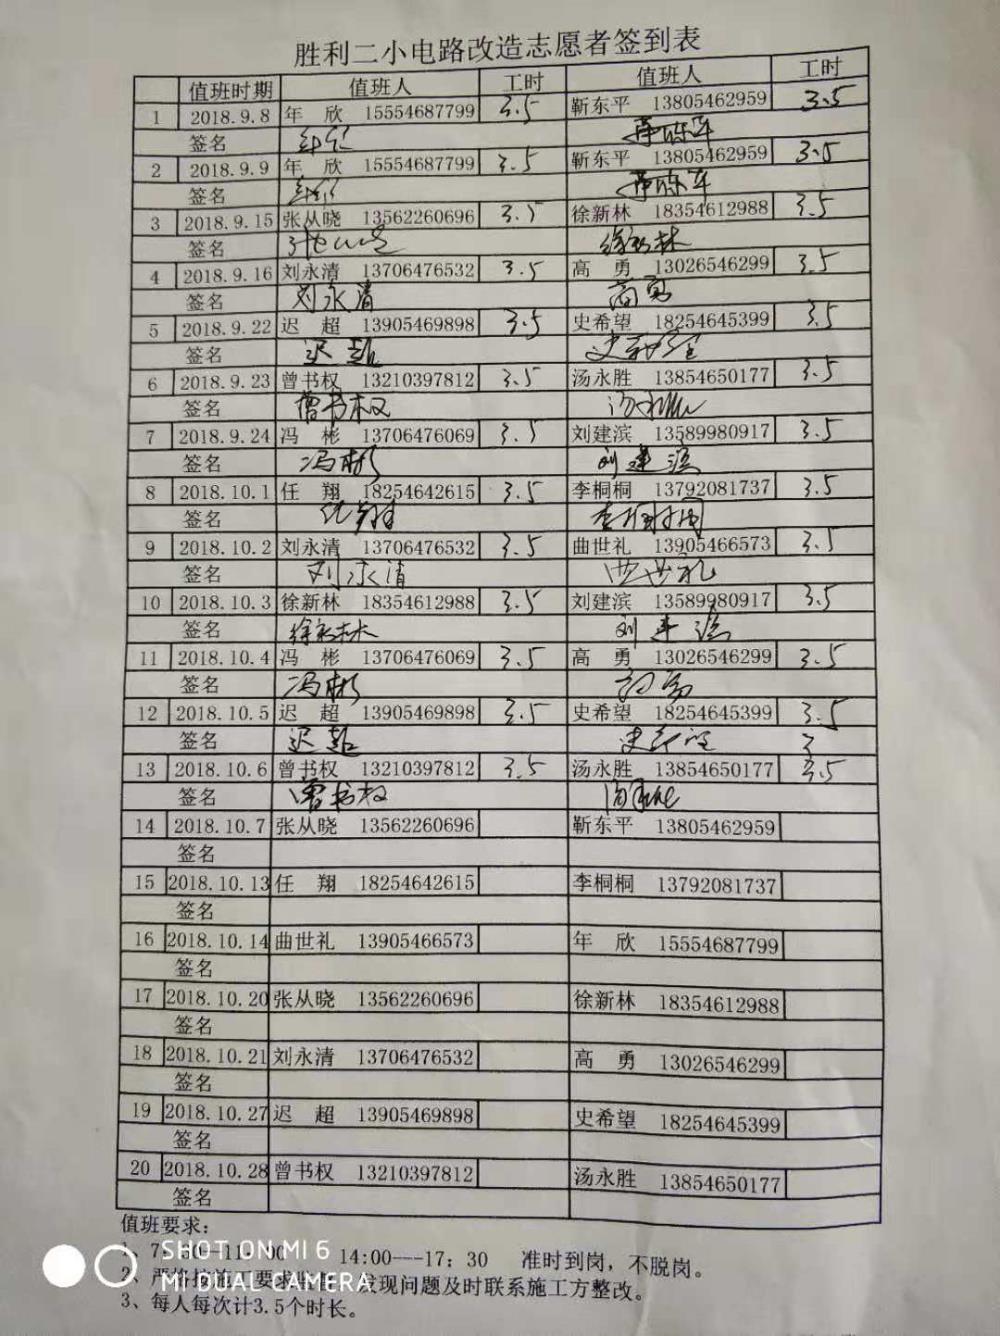 胜利二小电路改造志愿者签到表
值班时期 值班人 工时 值班人 工时
1 2018.9.8 年 欣 15554687799 3.5 靳东平 13805462959 3.5
签名
2 2018.9.9 年 欣 15554687799 3.5 靳东平 13805462959 3.5
签名
3 2018.9.15 张从晓 13562260696 3.5 徐新林 18354612988 3.5
签名 徐新林
4 2018.9.16 刘永清 13706476532 3.5 高 勇 13026546299 3.5
签名 刘永清 高勇
5 2018.9.22 迟 超 13905469898 3.5 史希望 18254645399 3.5
签名 迟超 史希望
6 2018.9.23 曾书权 13210397812 3.5 汤永胜 13854650177 3.5
签名 曾书权 汤永胜
7 2018.9.24 冯 彬 13706476069 3.5 刘建滨 13589980917 3.5
签名 冯彬 刘建滨
8 2018.10.1 任 翔 18254642615 3.5 李桐桐 13792081737 3.5
签名 任翔 李桐桐
9 2018.10.2 刘永清 13706476532 3.5 曲世礼 13905466573 3.5
签名 刘永清 曲世礼
10 2018.10.3 徐新林 18354612988 3.5 刘建滨 13589980917 3.5
签名 徐新林 刘建滨
11 2018.10.4 冯 彬 13706476069 3.5 高 勇 13026546299 3.5
签名 冯彬 高勇
12 2018.10.5 迟 超 13905469898 3.5 史希望 18254645399 3.5
签名 迟超 史希望 3
13 2018.10.6 曾书权 13210397812 3.5 汤永胜 13854650177 3.5
签名 曾书权 汤永胜
14 2018.10.7 张从晓 13562260696 靳东平 13805462959
签名
15 2018.10.13 任 翔 18254642615 李桐桐 13792081737
签名
16 2018.10.14 曲世礼 13905466573 年 欣 15554687799
签名
17 2018.10.20 张从晓 13562260696 徐新林 18354612988
签名
18 2018.10.21 刘永清 13706476532 高 勇 13026546299
签名
19 2018.10.27 迟 超 13905469898 史希望 18254645399
签名
20 2018.10.28 曾书权 13210397812 汤永胜 13854650177
签名
值班要求:
14:00---17:30 准时到岗，不脱岗。
SHOT ON MI 6
发现问题及时联系施工方整改。
MI DUAL CAMERA
3、每人每次计3.5个时长。